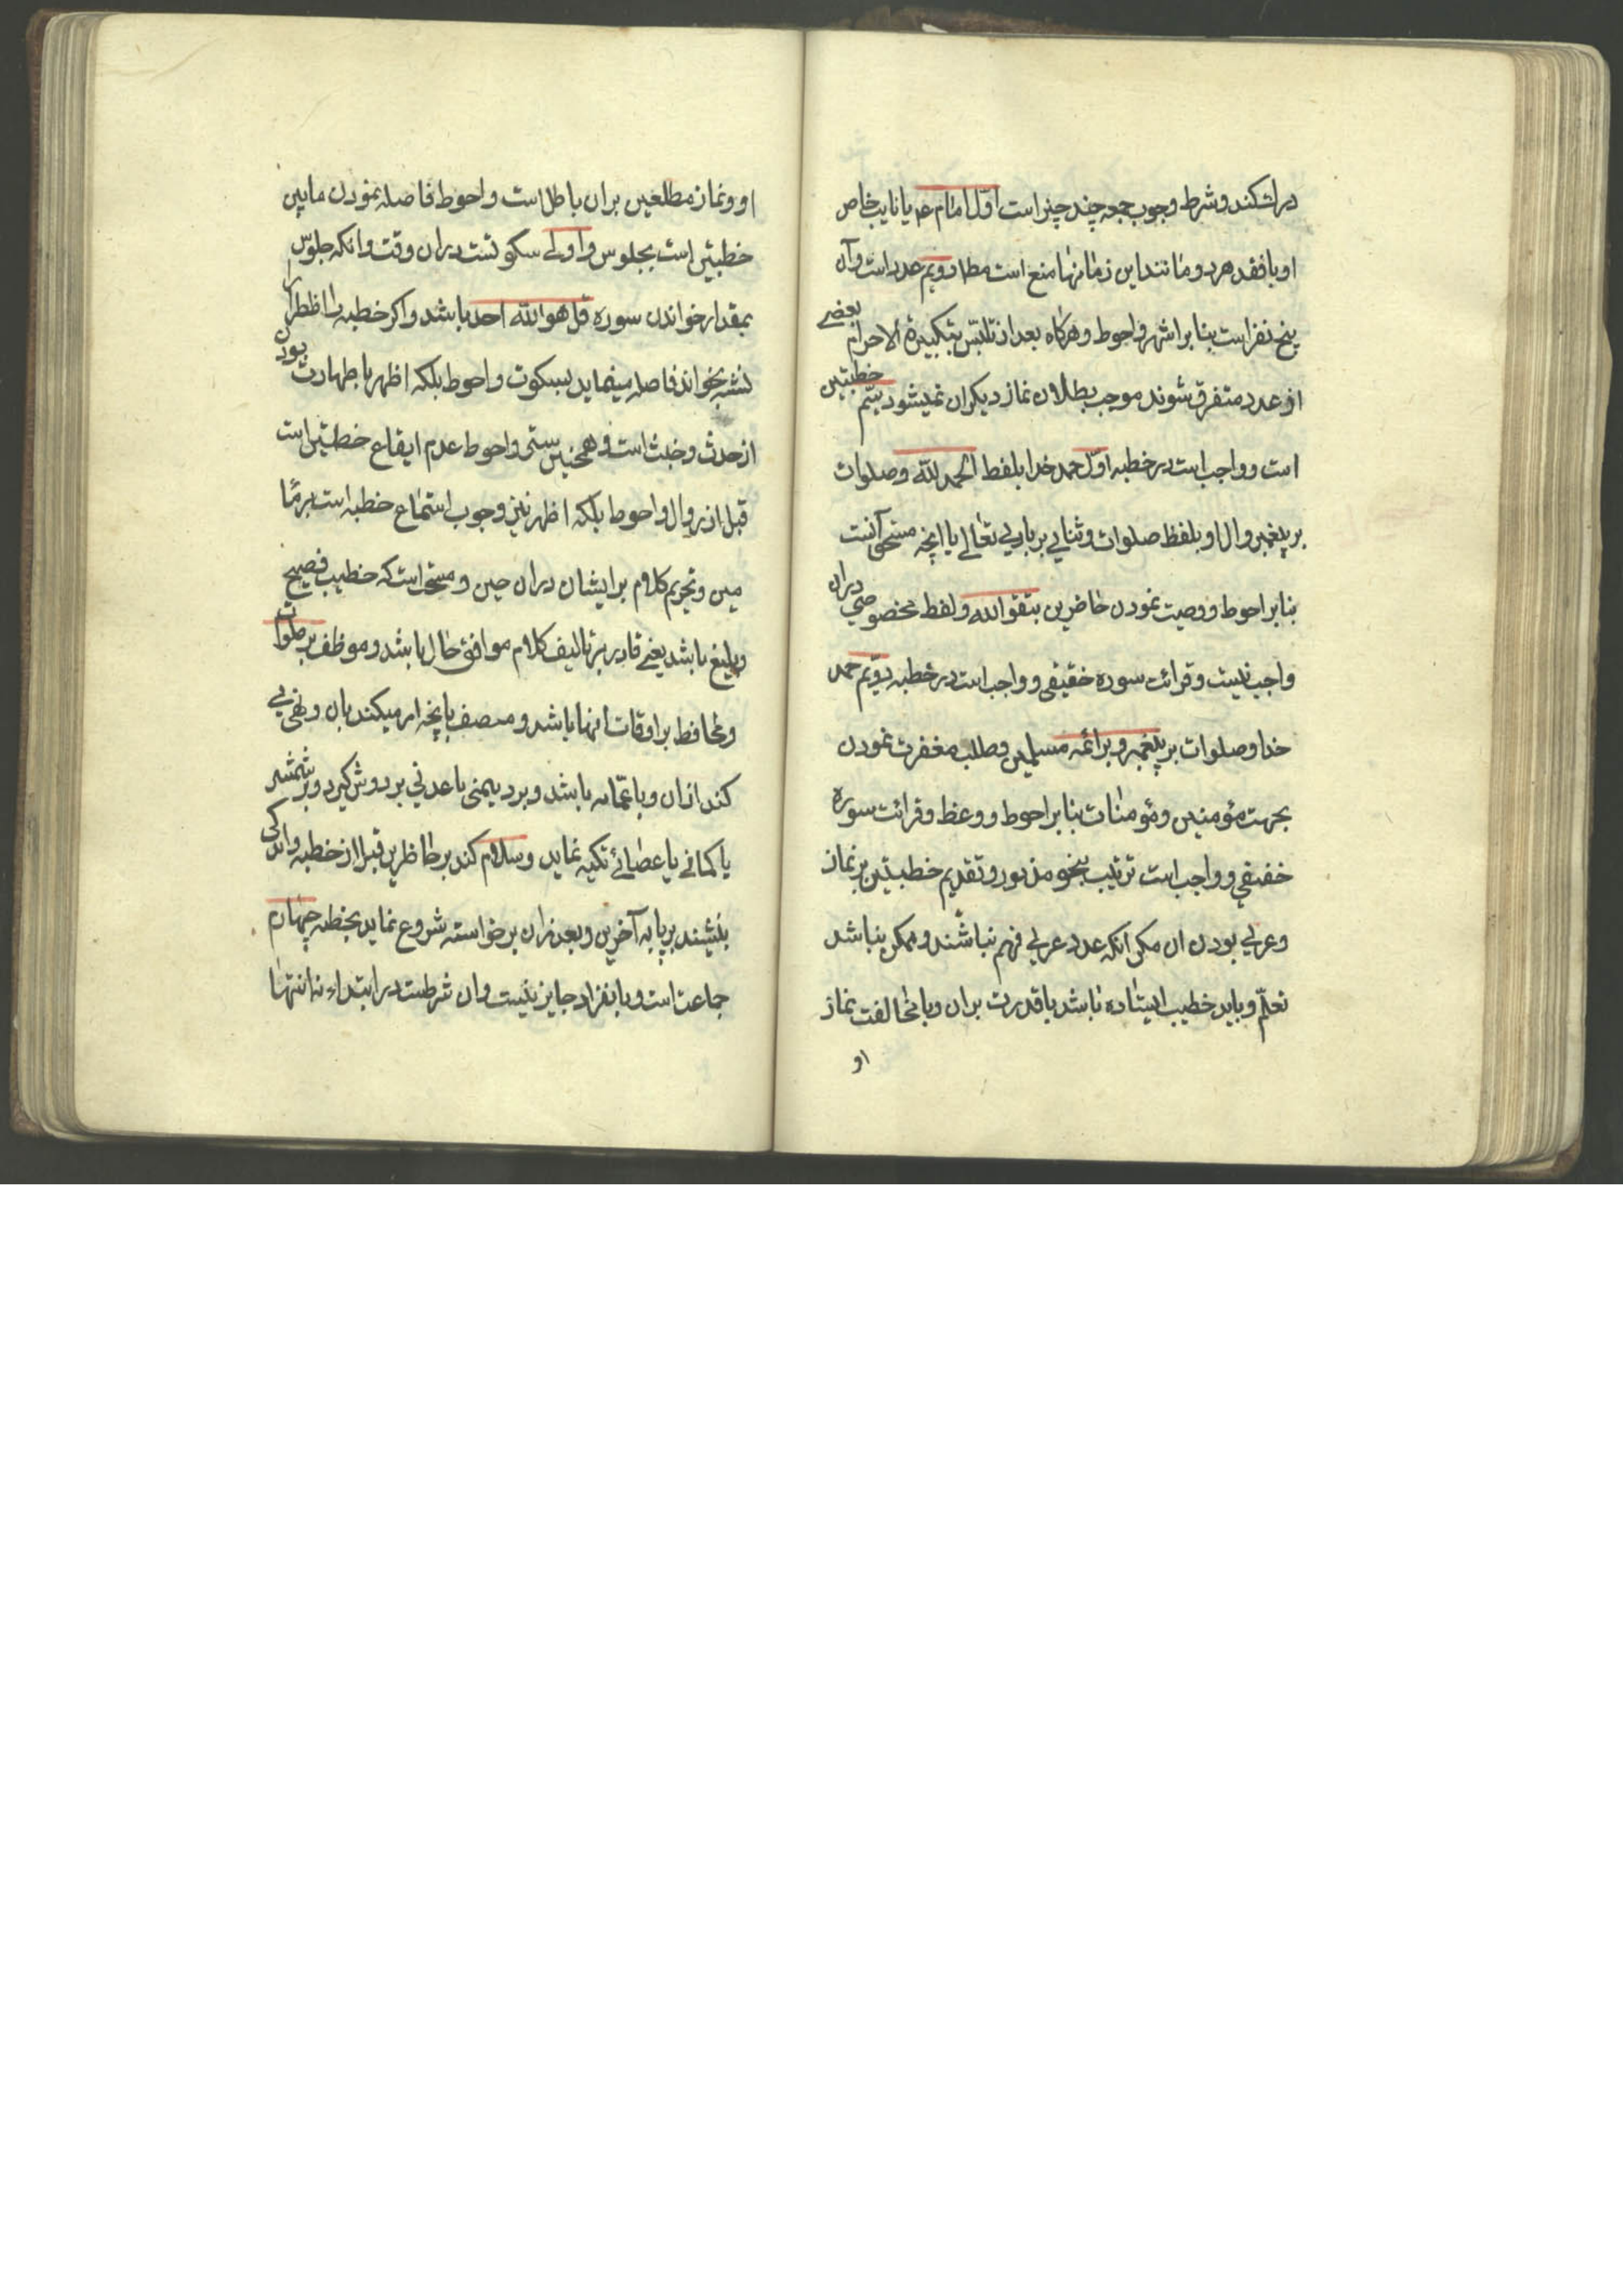 درک کند و شرط وجوب جمعه چند چیز است اوّل امام عم یا نایب خاص
او با فقد هر دو مانند این زمانها منع است مطلقا دویم عدد است و آن
پنج نفر است بنا بر اشهر و احوط و هرکاه بعد از تلبّس بتکبیرة الاحرام بعضی
از عدد متفرق شوند موجب بطلان نماز دیکران نمیشود سیّم خطبتین
است و واجب است در خطبه اوّل حمد خدا بلفظ الحمد للّه و صلوات
بر پیغمبر و ال او بلفظ صلوات و ثنای بر باری تعالی باانچه مستحق آنست
بنا بر احوط و وصیت نمودن حاضرین بتقوالله و لفظ مخصوصی دران
واجب نیست و قرائت سوره خفیفی و واجب است در خطبه دوّیم حمد
خدا و صلوات بر پیغمبر و بر ائمه مسلمین و طلب مغفرت نمودن
بجهت مؤمنین و مؤمنات بنا بر احوط و وعظ و قرائت سوره
خفیفی و واجب است ترتیب بنحو مذبور و تقدیم خطبتین بر نماز
و عربی بودن ان مکر آنکه عدد عربی فهم نباشند و ممکن نباشد
تعلّم و باید خطیب ایستاده باشد با قدرت بران و با مخالفت نماز
او
او و نماز مطلعین بران باطل است و احوط فاصله نمودن مابین
خطبتین است بجلوس و اولی سکوتست دران وقت و انکه جلوس
بمقدار خواندن سوره قل هو اللّه احد باشد و اکر خطبه را اظطرارا
نشسته بخواند فاصله مینماید بسکوت و احوط بلکه اظهر با طهارت بودن
از حدث و خبث است و همچنین ستر و احوط عدم ایقاع خطبتین است
قبل از زوال و احوط بلکه اظهر نیز وجوب استماع خطبه است بر مأ
مین و تحریم کلام بر ایشان دران حین و مستحب است که خطیب فصیح
و بلیغ باشد یعنی قادر بر تالیف کلام موافق حال باشد و موظف بر صلوات
و محافظ بر اوقات انها باشد و متصف بانچه امر میکند بان و نهی
کند ازان و با عمّامه باشد و برد یمنی یا عدنی بر دوش کیرد و بر شمشیر
یا کمانی یا عصائی تکیه نماید و سلام کند بر حاظرین قبل از خطبه و اندکی
بنشیند بر پایه آخرین و بعد ازان برخواسته شروع نماید بخطبه چهارم
جماعت است و بانفراد جایز نیست و ان شرطست در ابتداء نه انتها